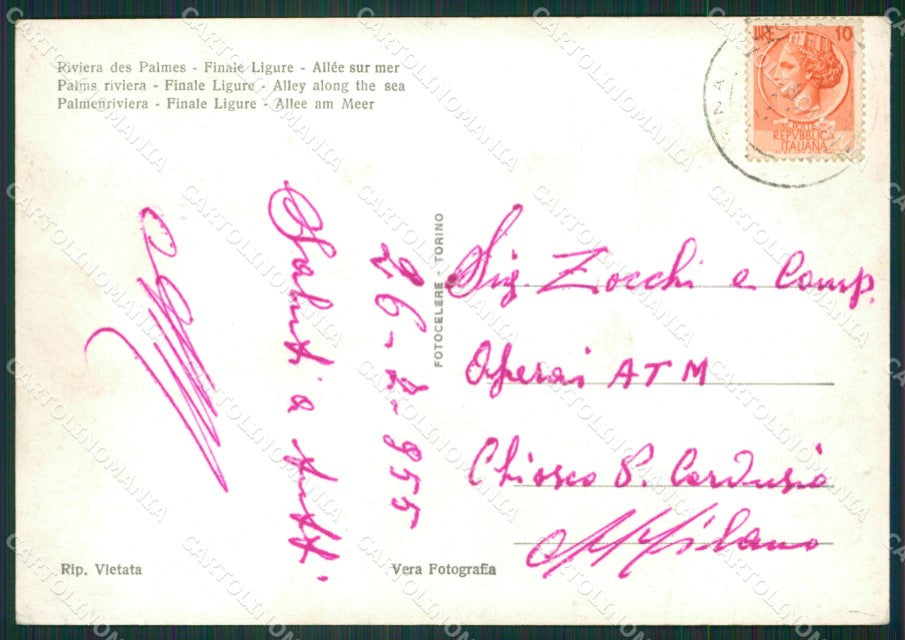 Riviera des Palmes - Finale Ligure - Allée sur mer
Palms riviera - Finale Ligure - Alley along the sea
Palmenriviera - Finale Ligure - Allee am Meer
LIRE 10
POSTE
REPVBBLICA
ITALIANA
Saluti a tutti.
26-2-955
FOTOCELERE - TORINO
Sig. Zocchi e Comp.
Operai ATM
Chiosco P. Cordusio
Milano
Rip. Vietata
Vera Fotografia
CARTOLINOMANIA